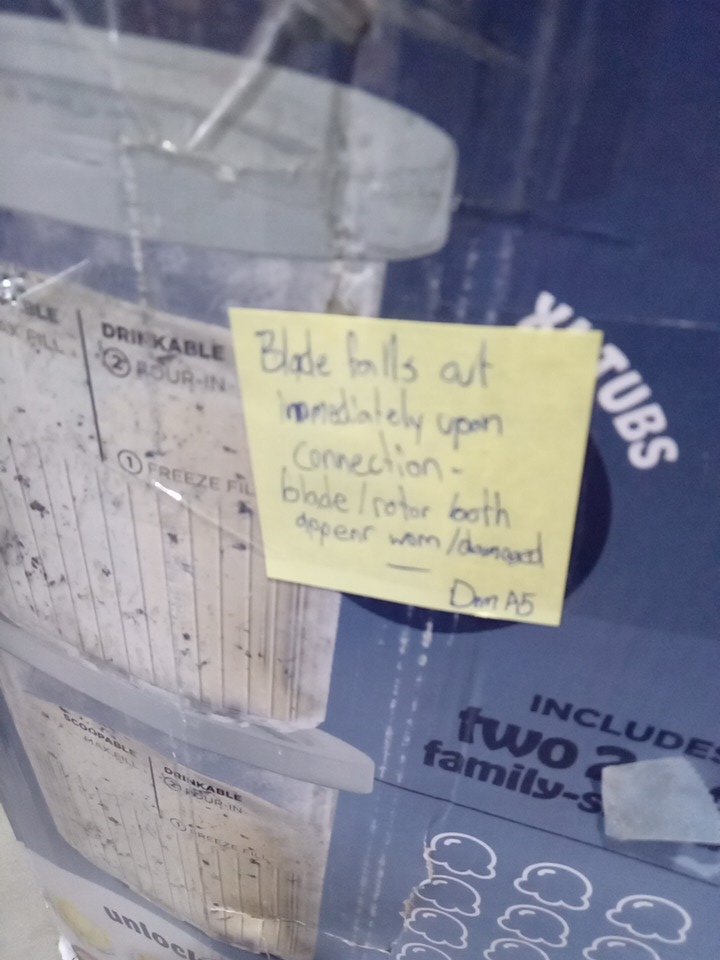 DRINKABLE
② POUR-IN
① FREEZE FIL
XL TUBS
Blade falls out
immediately upon
connection-
blade/rotor both
appear worn/damaged
INCLUDES
two 2
family-s
SCOOPABLE
MAX FILL
DRINKABLE
② POUR-IN
① FREEZE FILL
unlock